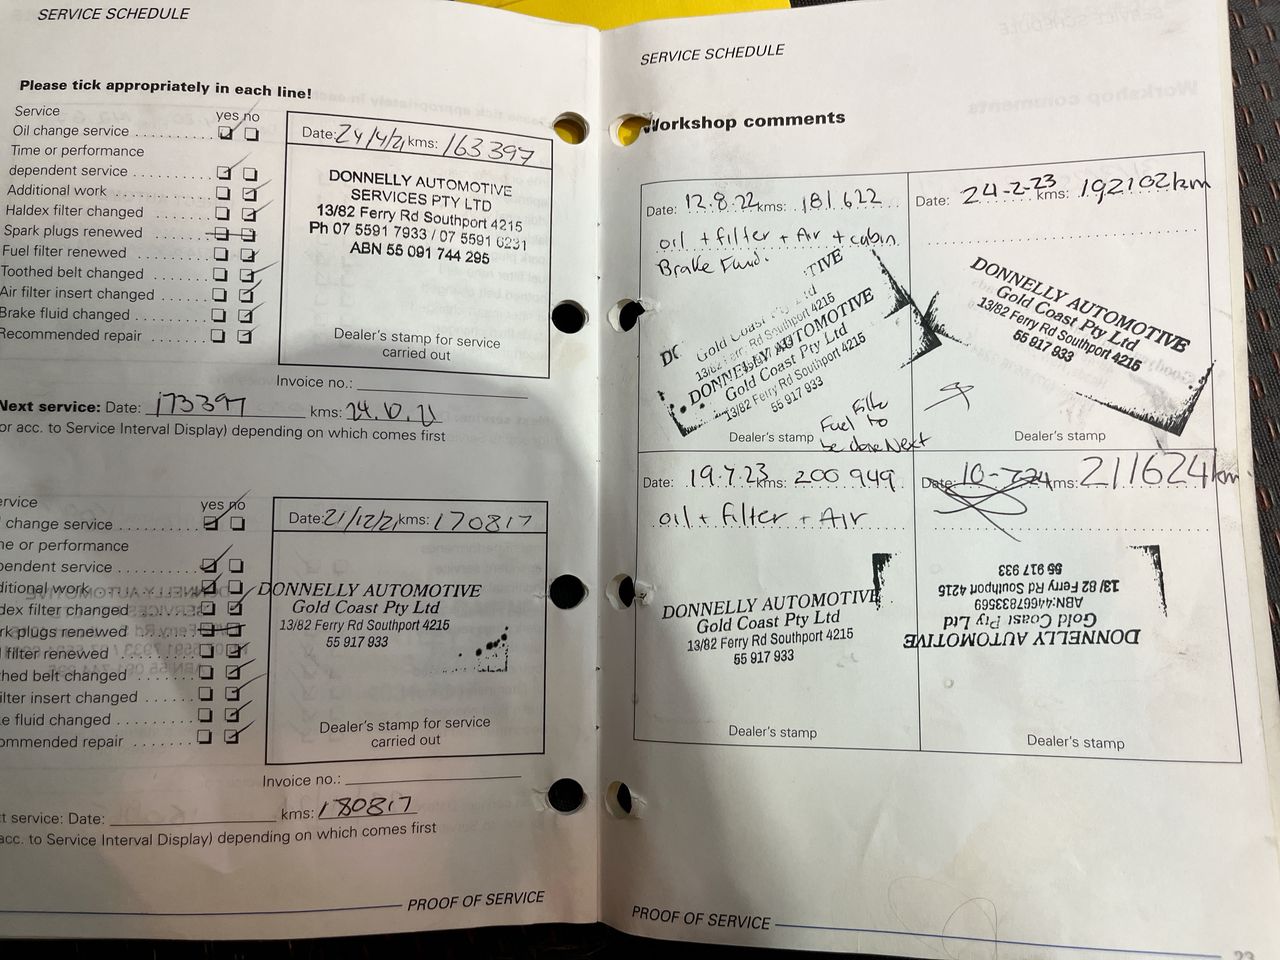 SERVICE SCHEDULE
Please tick appropriately in each line!
Service yes no
Oil change service
Time or performance
dependent service
Additional work
Haldex filter changed
Spark plugs renewed
Fuel filter renewed
Toothed belt changed
Air filter insert changed
Brake fluid changed
Recommended repair
Date: 24/4/21 kms: 163397
DONNELLY AUTOMOTIVE
SERVICES PTY LTD
13/82 Ferry Rd Southport 4215
Ph 07 5591 7933 / 07 5591 6231
ABN 55 091 744 295
Dealer's stamp for service
carried out
Invoice no.:
Next service: Date: 173397 kms: 24.10.21
or acc. to Service Interval Display) depending on which comes first
ervice yes no
l change service
ne or performance
pendent service
ditional work
dex filter changed
rk plugs renewed
l filter renewed
thed belt changed
ilter insert changed
e fluid changed
ommended repair
Date: 21/12/21 kms: 170817
DONNELLY AUTOMOTIVE
Gold Coast Pty Ltd
13/82 Ferry Rd Southport 4215
55 917 933
Dealer's stamp for service
carried out
Invoice no.:
t service: Date: kms: 180817
acc. to Service Interval Display) depending on which comes first
PROOF OF SERVICE
SERVICE SCHEDULE
Workshop comments
Date: 12.8.22 kms: 181.622
oil + filter + Air + cabin
Brake Fluid.
TIVE
Gold Coast Pty Ltd
13/82 Ferry Rd Southport 4215
DONNELLY AUTOMOTIVE
Gold Coast Pty Ltd
13/82 Ferry Rd Southport 4215
55 917 933
Fuel Filter to
be done Next
Dealer's stamp
Date: 24-2-23 kms: 192102km
DONNELLY AUTOMOTIVE
Gold Coast Pty Ltd
13/82 Ferry Rd Southport 4215
55 917 933
Dealer's stamp
Date: 19.7.23 kms: 200.949
oil + filter + Air
DONNELLY AUTOMOTIVE
Gold Coast Pty Ltd
13/82 Ferry Rd Southport 4215
55 917 933
Dealer's stamp
Date: 10-7-24 kms: 211624km
DONNELLY AUTOMOTIVE
Gold Coast Pty Ltd
ABN:44679833569
13/82 Ferry Rd Southport 4215
55 917 933
Dealer's stamp
PROOF OF SERVICE
23